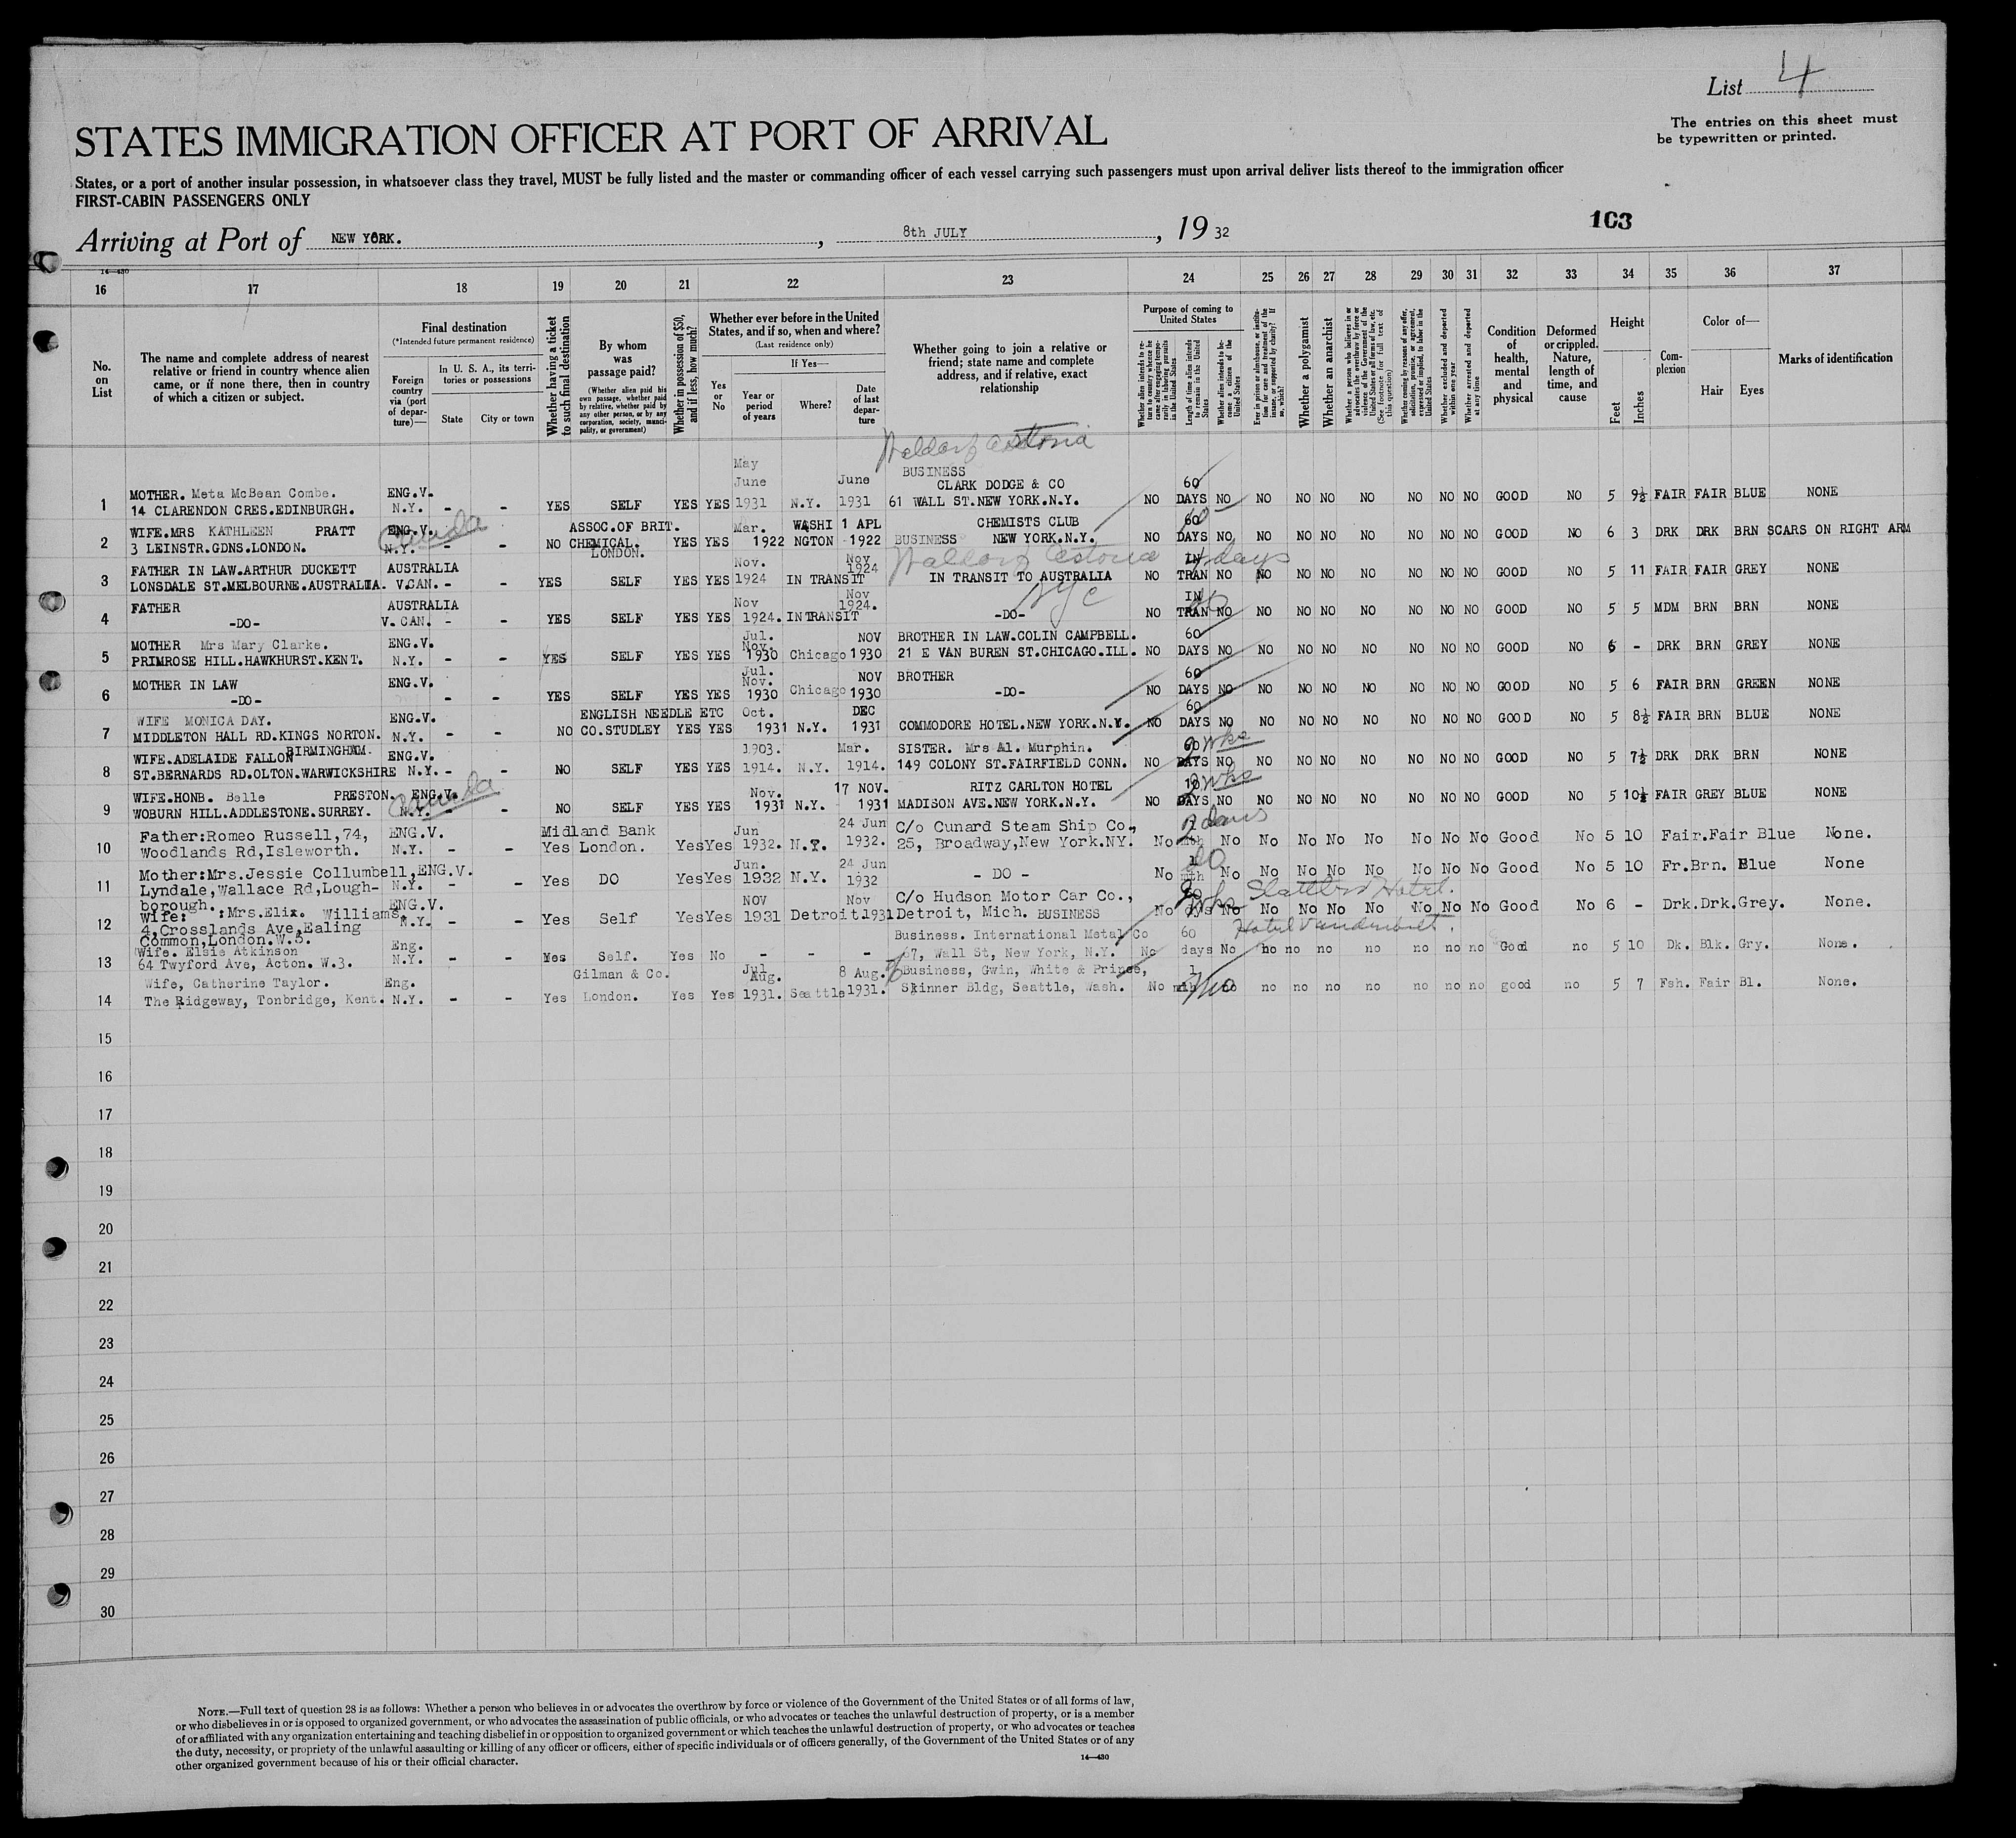 List 4
STATES IMMIGRATION OFFICER AT PORT OF ARRIVAL
The entries on this sheet must
be typewritten or printed.
States, or a port of another insular possession, in whatsoever class they travel, MUST be fully listed and the master or commanding officer of each vessel carrying such passengers must upon arrival deliver lists thereof to the immigration officer
FIRST-CABIN PASSENGERS ONLY
103
Arriving at Port of NEW YORK. , 8th JULY , 19 32
14—430
16 17 18 19 20 21 22 23 24 25 26 27 28 29 30 31 32 33 34 35 36 37
No. on List
The name and complete address of nearest relative or friend in country whence alien came, or if none there, then in country of which a citizen or subject.
Final destination
(*Intended future permanent residence)
Foreign country via (port of departure)—
In U. S. A., its territories or possessions
State
City or town
Whether having a ticket to such final destination
By whom was passage paid?
(Whether alien paid his own passage, whether paid by relative, whether paid by any other person, or by any corporation, society, municipality, or government)
Whether in possession of $50, and if less, how much?
Whether ever before in the United States, and if so, when and where?
(Last residence only)
Yes or No
If Yes—
Year or period of years
Where?
Date of last departure
Whether going to join a relative or friend; state name and complete address, and if relative, exact relationship
Purpose of coming to United States
Whether alien intends to return to country whence he came after engaging temporarily in laboring pursuits in the United States
Length of time alien intends to remain in the United States
Whether alien intends to become a citizen of the United States
Ever in prison or almshouse, or institution for care and treatment of the insane, or supported by charity? If so, which?
Whether a polygamist
Whether an anarchist
Whether a person who believes in or advocates the overthrow by force or violence of the Government of the United States or all forms of law, etc. (See footnote for full text of this question)
Whether coming by reasons of any offer, solicitation, promise, or agreement, expressed or implied, to labor in the United States
Whether excluded and deported within one year
Whether arrested and deported at any time
Condition of health, mental and physical
Deformed or crippled. Nature, length of time, and cause
Height
Feet
Inches
Complexion
Color of—
Hair
Eyes
Marks of identification
Waldorf Astoria
1 MOTHER. Meta McBean Combe. 14 CLARENDON CRES.EDINBURGH. ENG.V. N.Y. - - YES SELF YES YES May June 1931 N.Y. June 1931 BUSINESS CLARK DODGE & CO 61 WALL ST.NEW YORK.N.Y. NO 60 DAYS NO NO NO NO NO NO NO NO GOOD NO 5 9½ FAIR FAIR BLUE NONE
2 WIFE.MRS KATHLEEN PRATT 3 LEINSTR.GDNS.LONDON. ENG.V. N.Y. Canada - - NO ASSOC.OF BRIT. CHEMICAL. LONDON. YES YES Mar. 1922 WASHI NGTON 1 APL 1922 CHEMISTS CLUB BUSINESS NEW YORK.N.Y. NO 60 DAYS NO NO NO NO NO NO NO NO GOOD NO 6 3 DRK DRK BRN SCARS ON RIGHT ARM
Waldorf Astoria 4 days
NYC
3 FATHER IN LAW.ARTHUR DUCKETT LONSDALE ST.MELBOURNE.AUSTRALIA. AUSTRALIA V.CAN. - - YES SELF YES YES Nov. 1924 IN TRANSIT Nov 1924 IN TRANSIT TO AUSTRALIA NO IN TRAN NO NO NO NO NO NO NO NO GOOD NO 5 11 FAIR FAIR GREY NONE
4 FATHER -DO- AUSTRALIA V. CAN. - - YES SELF YES YES Nov 1924. IN TRANSIT Nov 1924. -DO- NO IN TRAN NO NO NO NO NO NO NO NO GOOD NO 5 5 MDM BRN BRN NONE
5 MOTHER Mrs Mary Clarke. PRIMROSE HILL.HAWKHURST.KENT. ENG.V. N.Y. - - YES SELF YES YES Jul. Nov. 1930 Chicago NOV 1930 BROTHER IN LAW.COLIN CAMPBELL. 21 E VAN BUREN ST.CHICAGO.ILL. NO 60 DAYS NO NO NO NO NO NO NO NO GOOD NO 6 - DRK BRN GREY NONE
6 MOTHER IN LAW -DO- ENG.V. - - YES SELF YES YES Jul. Nov. 1930 Chicago NOV 1930 BROTHER -DO- NO 60 DAYS NO NO NO NO NO NO NO NO GOOD NO 5 6 FAIR BRN GREEN NONE
7 WIFE MONICA DAY. MIDDLETON HALL RD.KINGS NORTON. BIRMINGHAM. ENG.V. N.Y. - - NO ENGLISH NEEDLE ETC CO.STUDLEY YES YES Oct. 1931 N.Y. DEC 1931 COMMODORE HOTEL.NEW YORK.N.Y. NO 60 DAYS NO NO NO NO NO NO NO NO GOOD NO 5 8½ FAIR BRN BLUE NONE
8 WIFE.ADELAIDE FALLON ST.BERNARDS RD.OLTON.WARWICKSHIRE ENG.V. N.Y. - - NO SELF YES YES 1903. 1914. N.Y. Mar. 1914. SISTER. Mrs Al. Murphin. 149 COLONY ST.FAIRFIELD CONN. NO 60 DAYS 2 wks NO NO NO NO NO NO NO NO GOOD NO 5 7½ DRK DRK BRN NONE
9 WIFE.HONB. Belle PRESTON. WOBURN HILL.ADDLESTONE.SURREY. ENG.V. N.Y. Canada - NO SELF YES YES Nov. 1931 N.Y. 17 NOV. 1931 RITZ CARLTON HOTEL MADISON AVE.NEW YORK.N.Y. NO 10 DAYS 2 wks NO NO NO NO NO NO NO NO GOOD NO 5 10½ FAIR GREY BLUE NONE
10 Father:Romeo Russell,74, Woodlands Rd,Isleworth. ENG.V. N.Y. - - Yes Midland Bank London. Yes Yes Jun 1932. N.Y. 24 Jun 1932. C/o Cunard Steam Ship Co., 25, Broadway,New York.NY. No mth days No No No No No No No No Good No 5 10 Fair.Fair Blue None.
11 Mother:Mrs.Jessie Collumbell, Lyndale,Wallace Rd,Lough-borough. ENG.V. N.Y. - - Yes DO Yes Yes Jun. 1932 N.Y. 24 Jun 1932 - DO - No 1 mth do No No No No No No No No Good No 5 10 Fr.Brn. Blue None
12 Wife: :Mrs.Elix. Williams, 4,Crosslands Ave,Ealing Common,London.W.5. ENG.V. N.Y. - - Yes Self Yes Yes NOV 1931 Detroit. Nov 1931 C/o Hudson Motor Car Co., Detroit, Mich. BUSINESS No dys wks No No No No No No No No Good No 6 - Drk.Drk.Grey. None.
Hotel Vanderbilt.
13 Wife. Elsie Atkinson 64 Twyford Ave, Acton. W.3. Eng. N.Y. - - Yes Self. Yes No - - - Business. International Metal Co 67, Wall St, New York, N.Y. No 60 days No no no no no no no no Good no 5 10 Dk. Blk. Gry. None.
14 Wife, Catherine Taylor. The Ridgeway, Tonbridge, Kent. Eng. N.Y. - - Yes Gilman & Co. London. Yes Yes Jul Aug. 1931. Seattle 8 Aug. 1931. Business, Gwin, White & Prince, Skinner Bldg, Seattle, Wash. No 1 mth no no no no no no no no good no 5 7 Fsh. Fair Bl. None.
15
16
17
18
19
20
21
22
23
24
25
26
27
28
29
30
NOTE.—Full text of question 28 is as follows: Whether a person who believes in or advocates the overthrow by force or violence of the Government of the United States or of all forms of law,
or who disbelieves in or is opposed to organized government, or who advocates the assassination of public officials, or who advocates or teaches the unlawful destruction of property, or is a member
of or affiliated with any organization entertaining and teaching disbelief in or opposition to organized government or which teaches the unlawful destruction of property, or who advocates or teaches
the duty, necessity, or propriety of the unlawful assaulting or killing of any officer or officers, either of specific individuals or of officers generally, of the Government of the United States or of any
other organized government because of his or their official character.
14—430